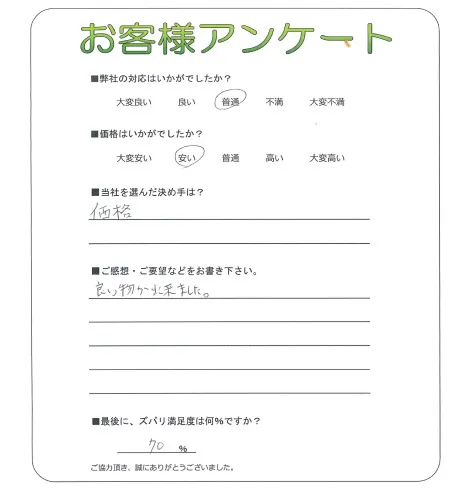 お客様アンケート
■弊社の対応はいかがでしたか?
大変良い 良い 普通 不満 大変不満
■価格はいかがでしたか?
大変安い 安い 普通 高い 大変高い
■当社を選んだ決め手は?
価格
■ご感想・ご要望などをお書き下さい。
良い物が出来ました。
■最後に、ズバリ満足度は何%ですか?
70 %
ご協力頂き、誠にありがとうございました。